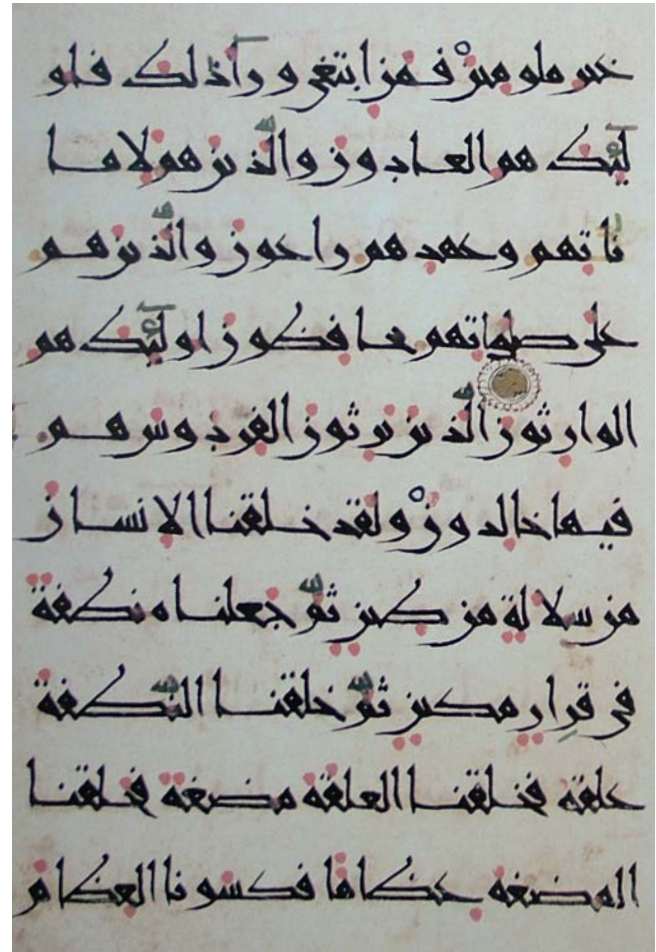 غير ملومين فمن ابتغى ورآ ذلك فاو
لئك هم العادون والّذين هم لاما
ناتهم وعهدهم راعون والّذين هم
على صلواتهم يحافظون اولئك هم
الوارثون الّذين يرثون الفردوس هم
فيها خالدون ولقد خلقنا الانسان
من سلالة من طين ثمّ جعلناه نطفة
فى قرار مكين ثمّ خلقنا النّطفة
علقة فخلقنا العلقة مضغة فخلقنا
المضغة عظاما فكسونا العظام